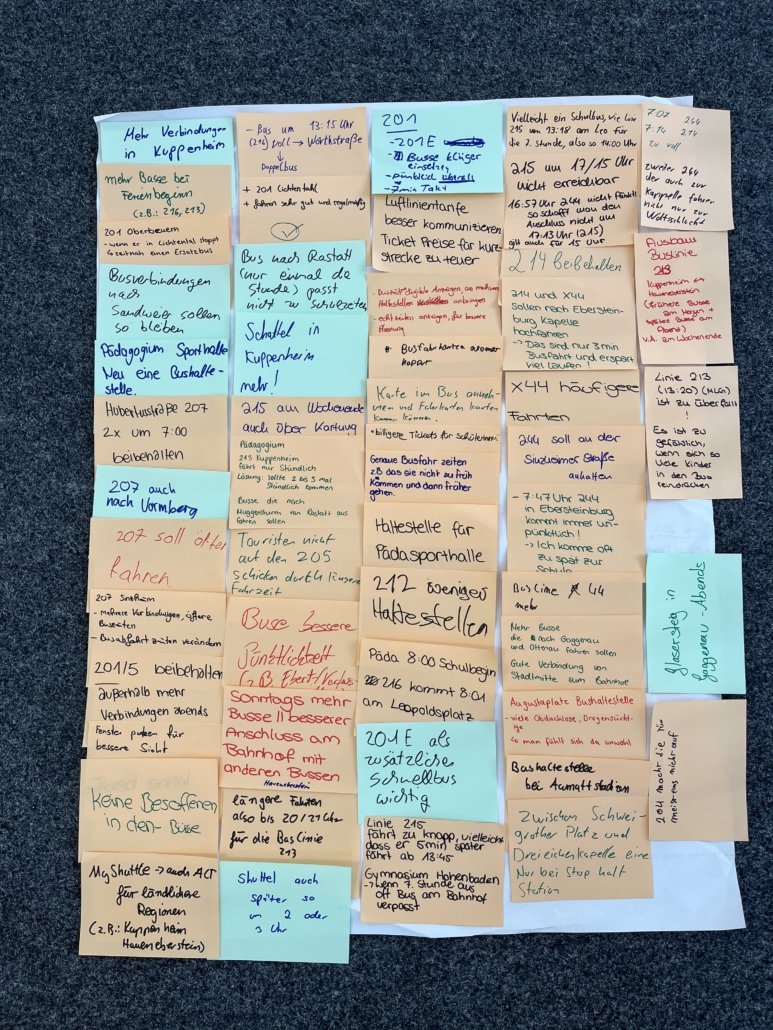 Mehr Verbindungen
in Kuppenheim
mehr Busse bei
Ferienbeginn
(z.B.: 216, 213)
201 Oberbeuern
- wenn er in Lichtental stoppt
Busverbindungen
nach
Sandweier sollen
so bleiben
Pädagogium Sporthalle
Neu eine Bushalte-
stelle.
Hubertusstraße 207
2x um 7:00
beibehalten
207 auch
nach Varnhalt
207 soll öfter
fahren
207 Sinzheim
- Mehrere Verbindungen, öftere
Buszeiten
- Busabfahrt zeiten verändern
201/5 beibehalten
außerhalb mehr
Verbindungen abends
Fenster putzen für
bessere Sicht
Keine Besoffenen
in den Büsse
MyShuttle → auch ALT
für ländlichere
Regionen
(z.B.: Kuppenheim
Haueneberstein)
- Bus um 13:15 Uhr
(216) voll → Wörthstraße
↓
Doppelbus
+ 201 Lichtental
+ fahren sehr gut und regelmäßig
Bus nach Rastatt
(nur einmal die
Stunde) passt
nicht zu Schulzeiten
Schuttel in
Kuppenheim
mehr!
215 am Wochenende
auch über Kartung
Pädagogium
215 Kuppenheim
fährt nur Stündlich
Lösung: sollte 2 bis 3 mal
Stündlich kommen
Busse die nach
Muggensturm von Rastatt aus
fahren sollen
Touristen nicht
auf den 205
schicken durch längere
Fahrzeit
Buse bessere
Pünktlichkeit
Sonntags mehr
Busse || besserer
Anschluss am
Bahnhof mit
anderen Bussen
Haueneberstein
längere Fahrten
also bis 20/21 Uhr
für die Bus Linie
213
Shuttel auch
später so
um 2 oder
3 Uhr
201
- 201E
- Busse klüger
einsetzen
- pünktlich überall
- 7min Takt
Luftlinientarife
besser kommunizieren
Ticket Preise für kurz
strecke zu teuer
Haltestellen anbringen
- echtzeiten anzeigen, für bessere
Planung
Busfahrkarten
Karte im Bus anneh-
men und Fahrkarten kaufen
können.
• billigere Tickets für Schüler
Genaue Busfahr zeiten
z.B das sie nicht zu früh
kommen und dann früher
gehen.
Haltestelle für
Pädasporthalle
212 weniger
Haltestellen
Päda 8:00 Schulbegin
216 kommt 8:01
am Leopoldsplatz
201 E als
zusätzlicher
Schnellbus
wichtig
Linie 215
fährt zu knapp, vielleicht
dass er 5min später
fährt ab 13:45
Gymnasium Hohenbaden
→ wenn 7. Stunde aus
oft Bus am Bahnhof
verpasst
Vielleicht ein Schulbus, wie Linie
215 um 13:18 am Leo für
die 7. Stunde, also so 14:00 Uhr
215 um 17/15 Uhr
nicht erreichbar
16:57 Uhr 244 nicht Pünktl.
so schafft man den
Anschluss nicht um
17:13 Uhr (215)
gilt auch für 15 Uhr
214 beibehalten
214 und X44
Sollen nach Eberstein-
burg Kapelle
hochfahren
→ Das sind nur 3 min
Busfahrt und erspart
viel laufen!
X44 häufigere
Fahrten
244 soll an der
Sinzheimer Straße
anhalten
- 7:47 Uhr 244
in Ebersteinburg
kommt immer un-
pünktlich!
→ Ich komme oft
zu spät zur
Schule
Bus Linie X44
mehr
Mehr Busse
die nach Gaggenau
und Ottenau fahren sollen
Gute Verbindung von
Stadtmitte zum Bahnhof
Augustaplatz Bushaltestelle
- viele Obdachlose, Drogensücht-
ige
so man fühlt sich da unwohl
Bushaltestelle
bei Aumattstadion
Zwischen Schwei-
grother Platz und
Dreieichenkapelle eine
Nur bei Stop halt
Station
7:07 244
7:14 214
zu voll
zweiter 244
der auch zur
Kappelle fahren
nicht nur zur
Wolfsschlucht
Ausbau
Buslinie
213
Kuppenheim &
Haueneberstein
(frühere Busse
am Morgen +
spätere Busse am
Abend)
V.A. am Wochenende
Linie 213
(13:20) (MLG)
ist zu überfüllt
!
Es ist zu
gefährlich,
wenn sich so
viele Kinder
in den Bus
reindrücken
in
Gaggenau - Abends
204 macht die Tür
meistens nicht auf